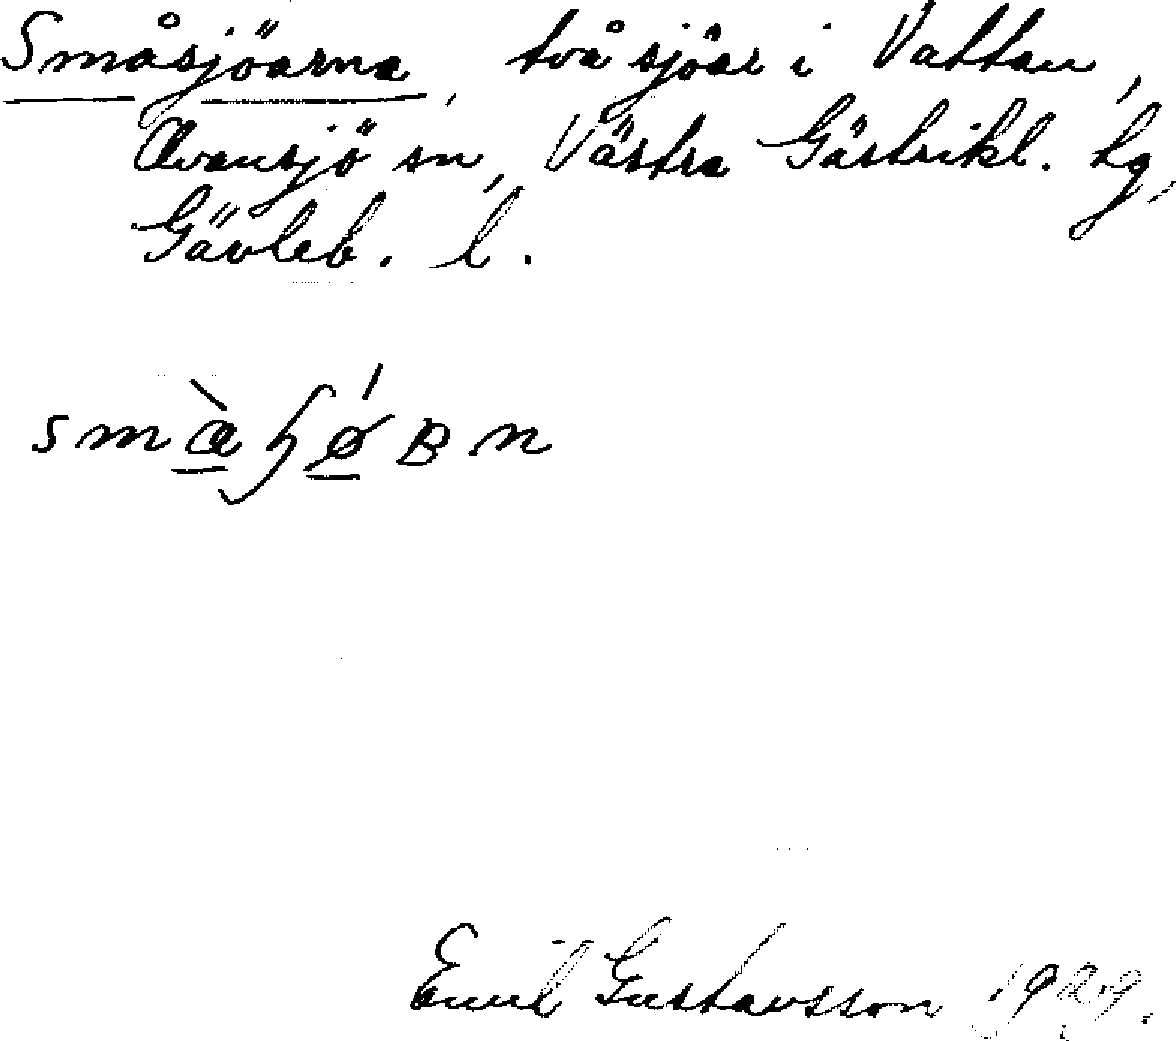 Småsjöarna, två sjöar i Vattan,
Ovansjö sn, Västra Gästrikl. tg,
Gävleb. l.
Emil Gustavsson 1929.